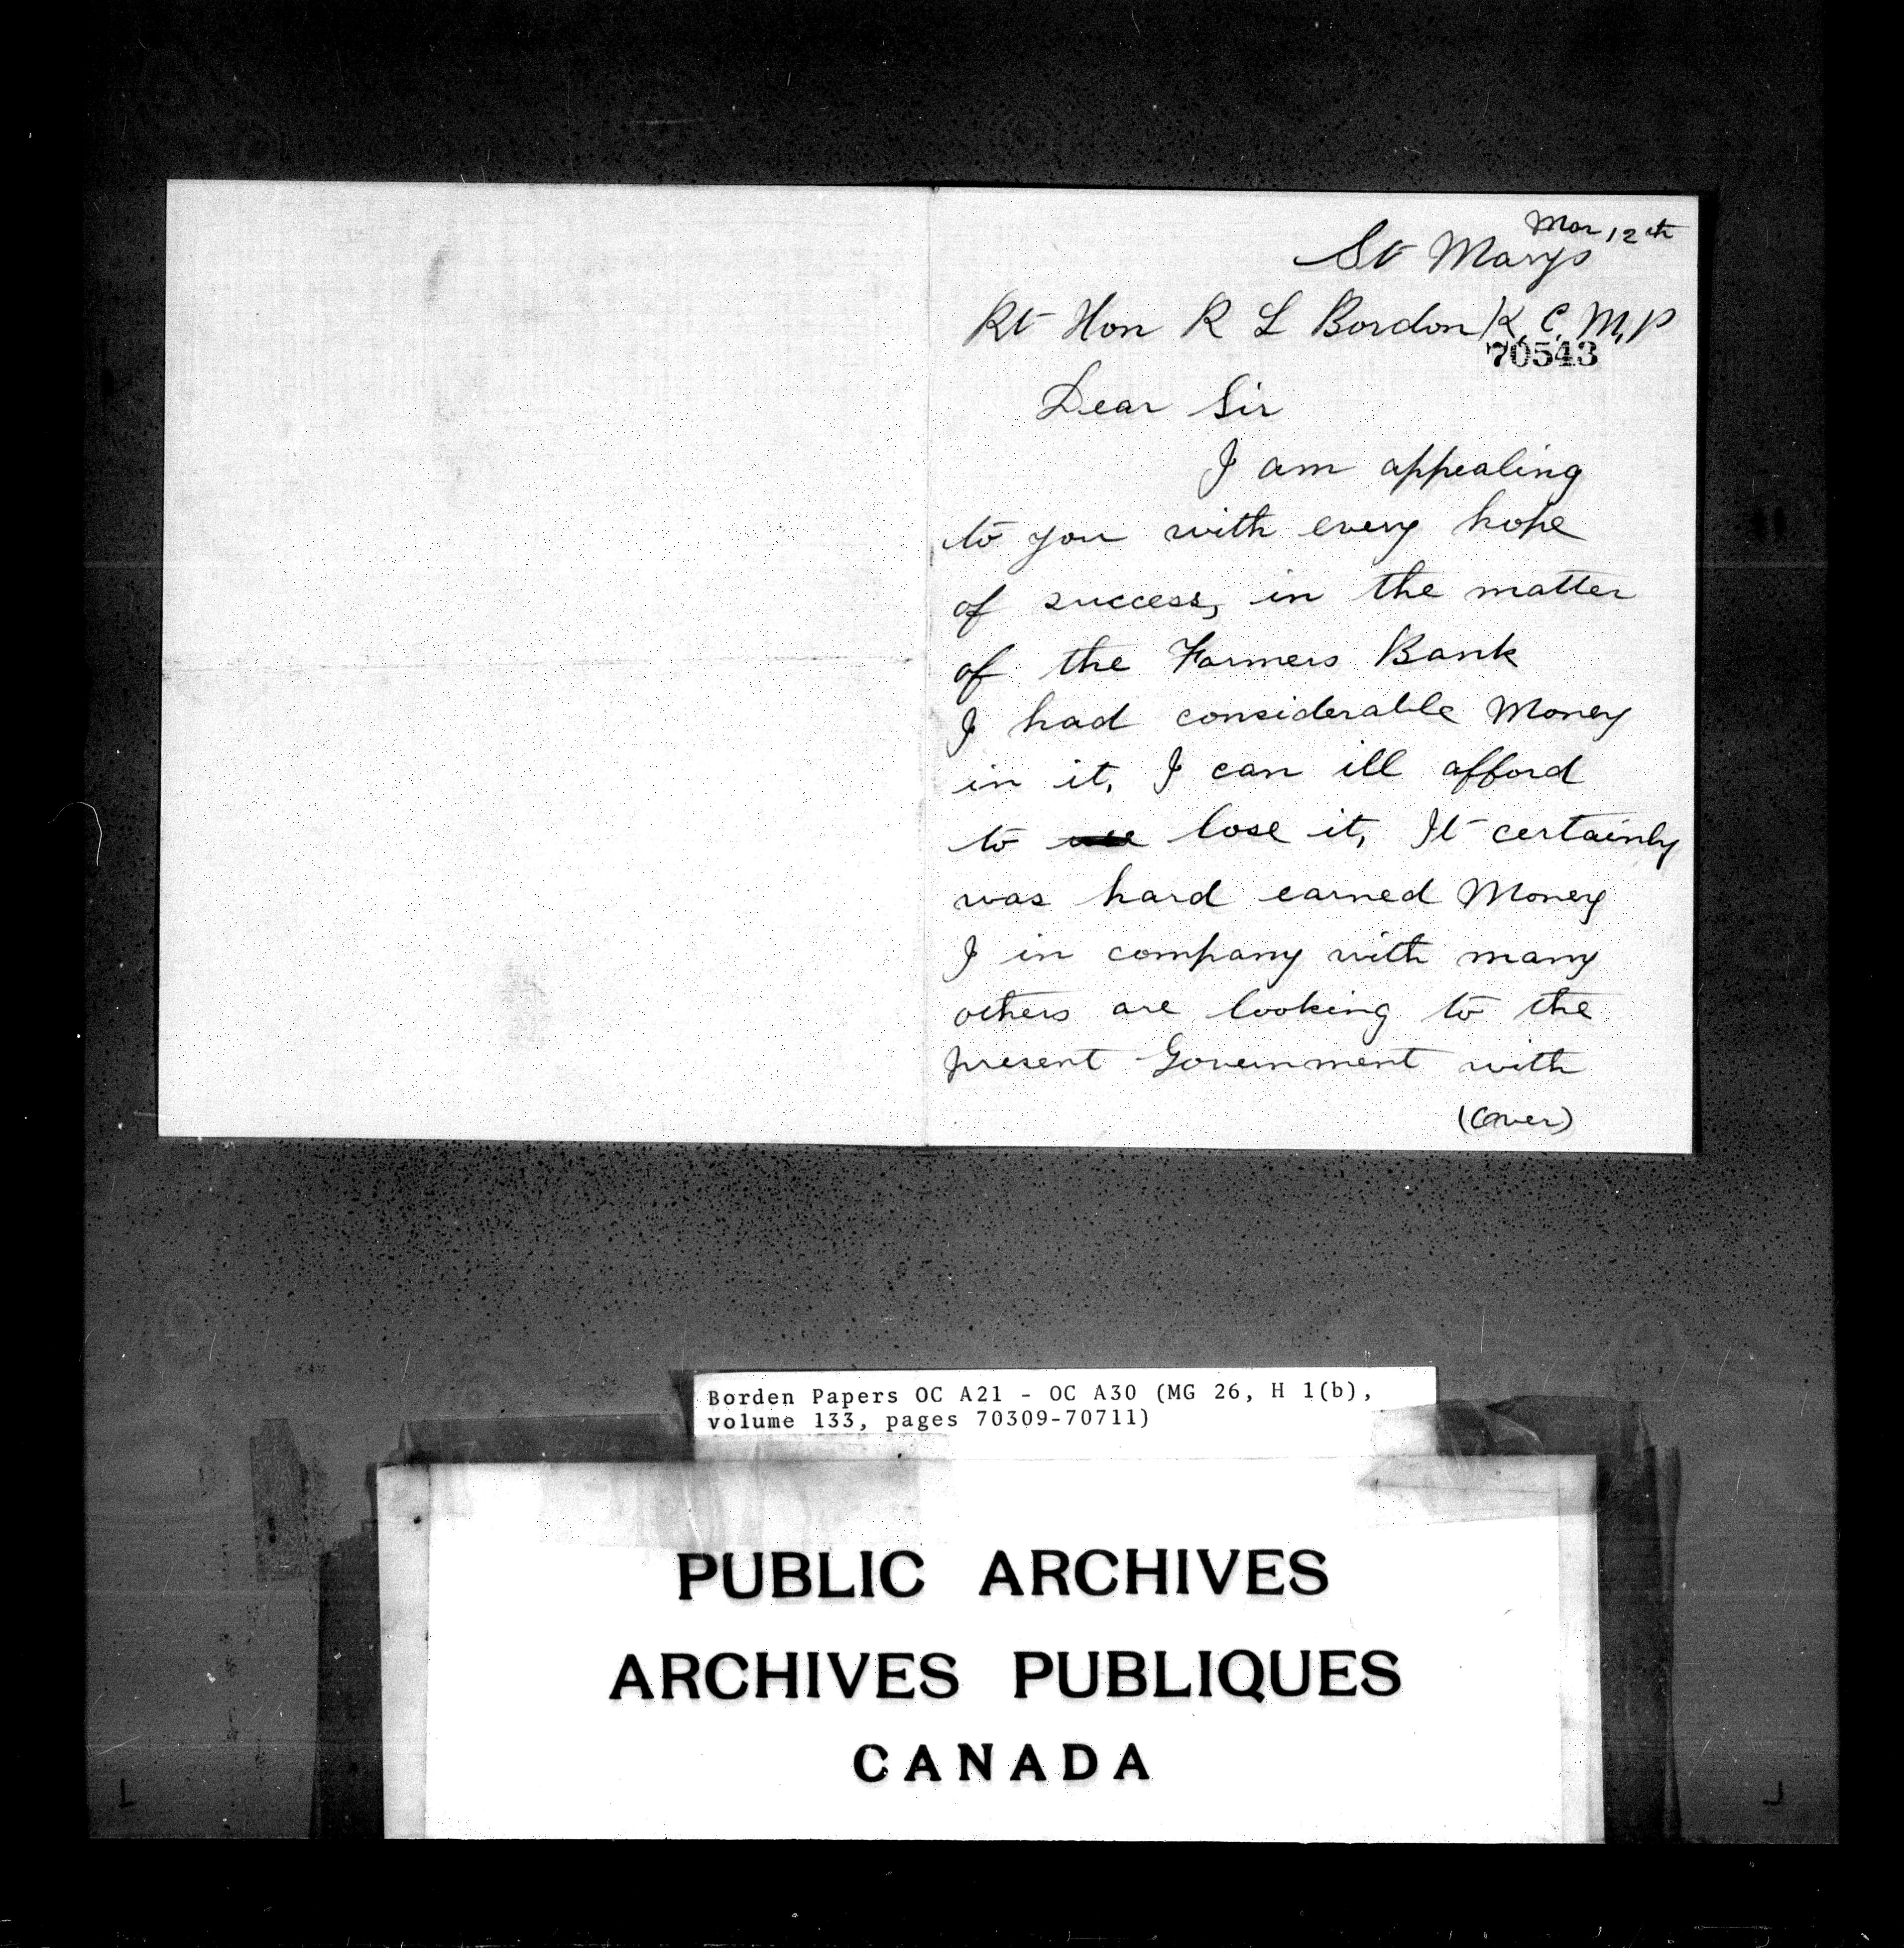 Mar 12th
St Marys
Rt Hon R L Bordon K, C, M, P
70543
Dear Sir
I am appealing
to you with every hope
of success, in the matter
of the Farmers Bank
I had considerable Money
in it, I can ill afford
to lose it, It certainly
was hard earned Money
I in company with many
others are looking to the
present Government with
(Over)
Borden Papers OC A21 - OC A30 (MG 26, H 1(b),
volume 133, pages 70309-70711)
PUBLIC ARCHIVES
ARCHIVES PUBLIQUES
CANADA